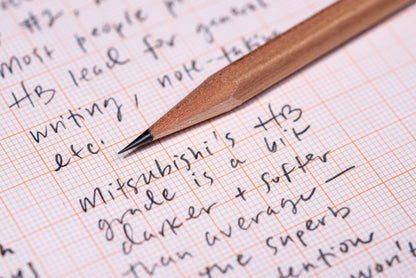 #2
most people
HB lead for general
writing, note-taking
etc.
Mitsubishi's HB
grade is a bit
darker + softer
than average —
the superb